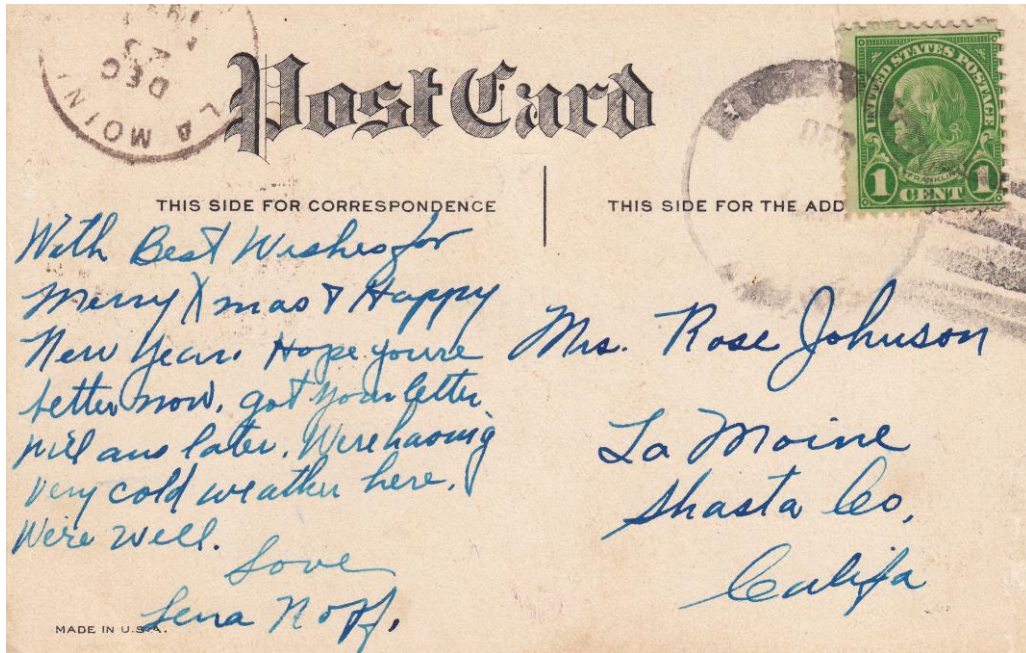 LA MOIN
DEC
Post Card
UNITED STATES POSTAGE
FRANKLIN
1 CENT 1
THIS SIDE FOR CORRESPONDENCE
THIS SIDE FOR THE ADD
With Best Wishes for
Merry Xmas & Happy
New Year. Hope you're
better now, got your letter
will ans later. We're having
very cold weather here.
We're well.
Love
Lena
Mrs. Rose Johnson
La Moine
Shasta Co,
Califa
MADE IN U.S.A.